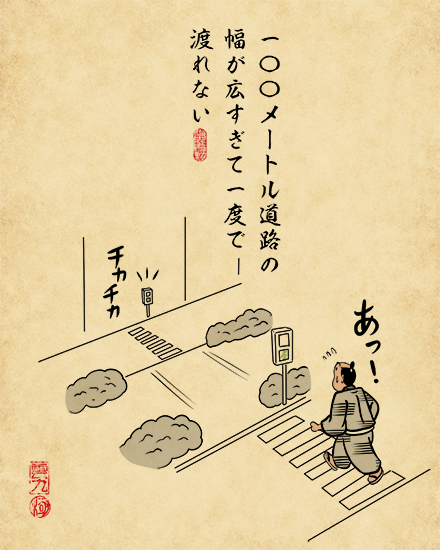 一〇〇メートル道路の
幅が広すぎて一度で―
渡れない
チカチカ
あっ!